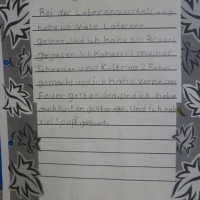 Bei der Laternenausstellung
habe ich viele Laternen
gesehen. Und ich habe ein Brezel
gegessen. Ich habe mit meiner
Schwester und Katrina 2 Fotos
gemacht und ich habe vorne am
Feuer gestanden und ich habe
auch hinten gestanden. Und ich habe
viel Spaß gehabt.